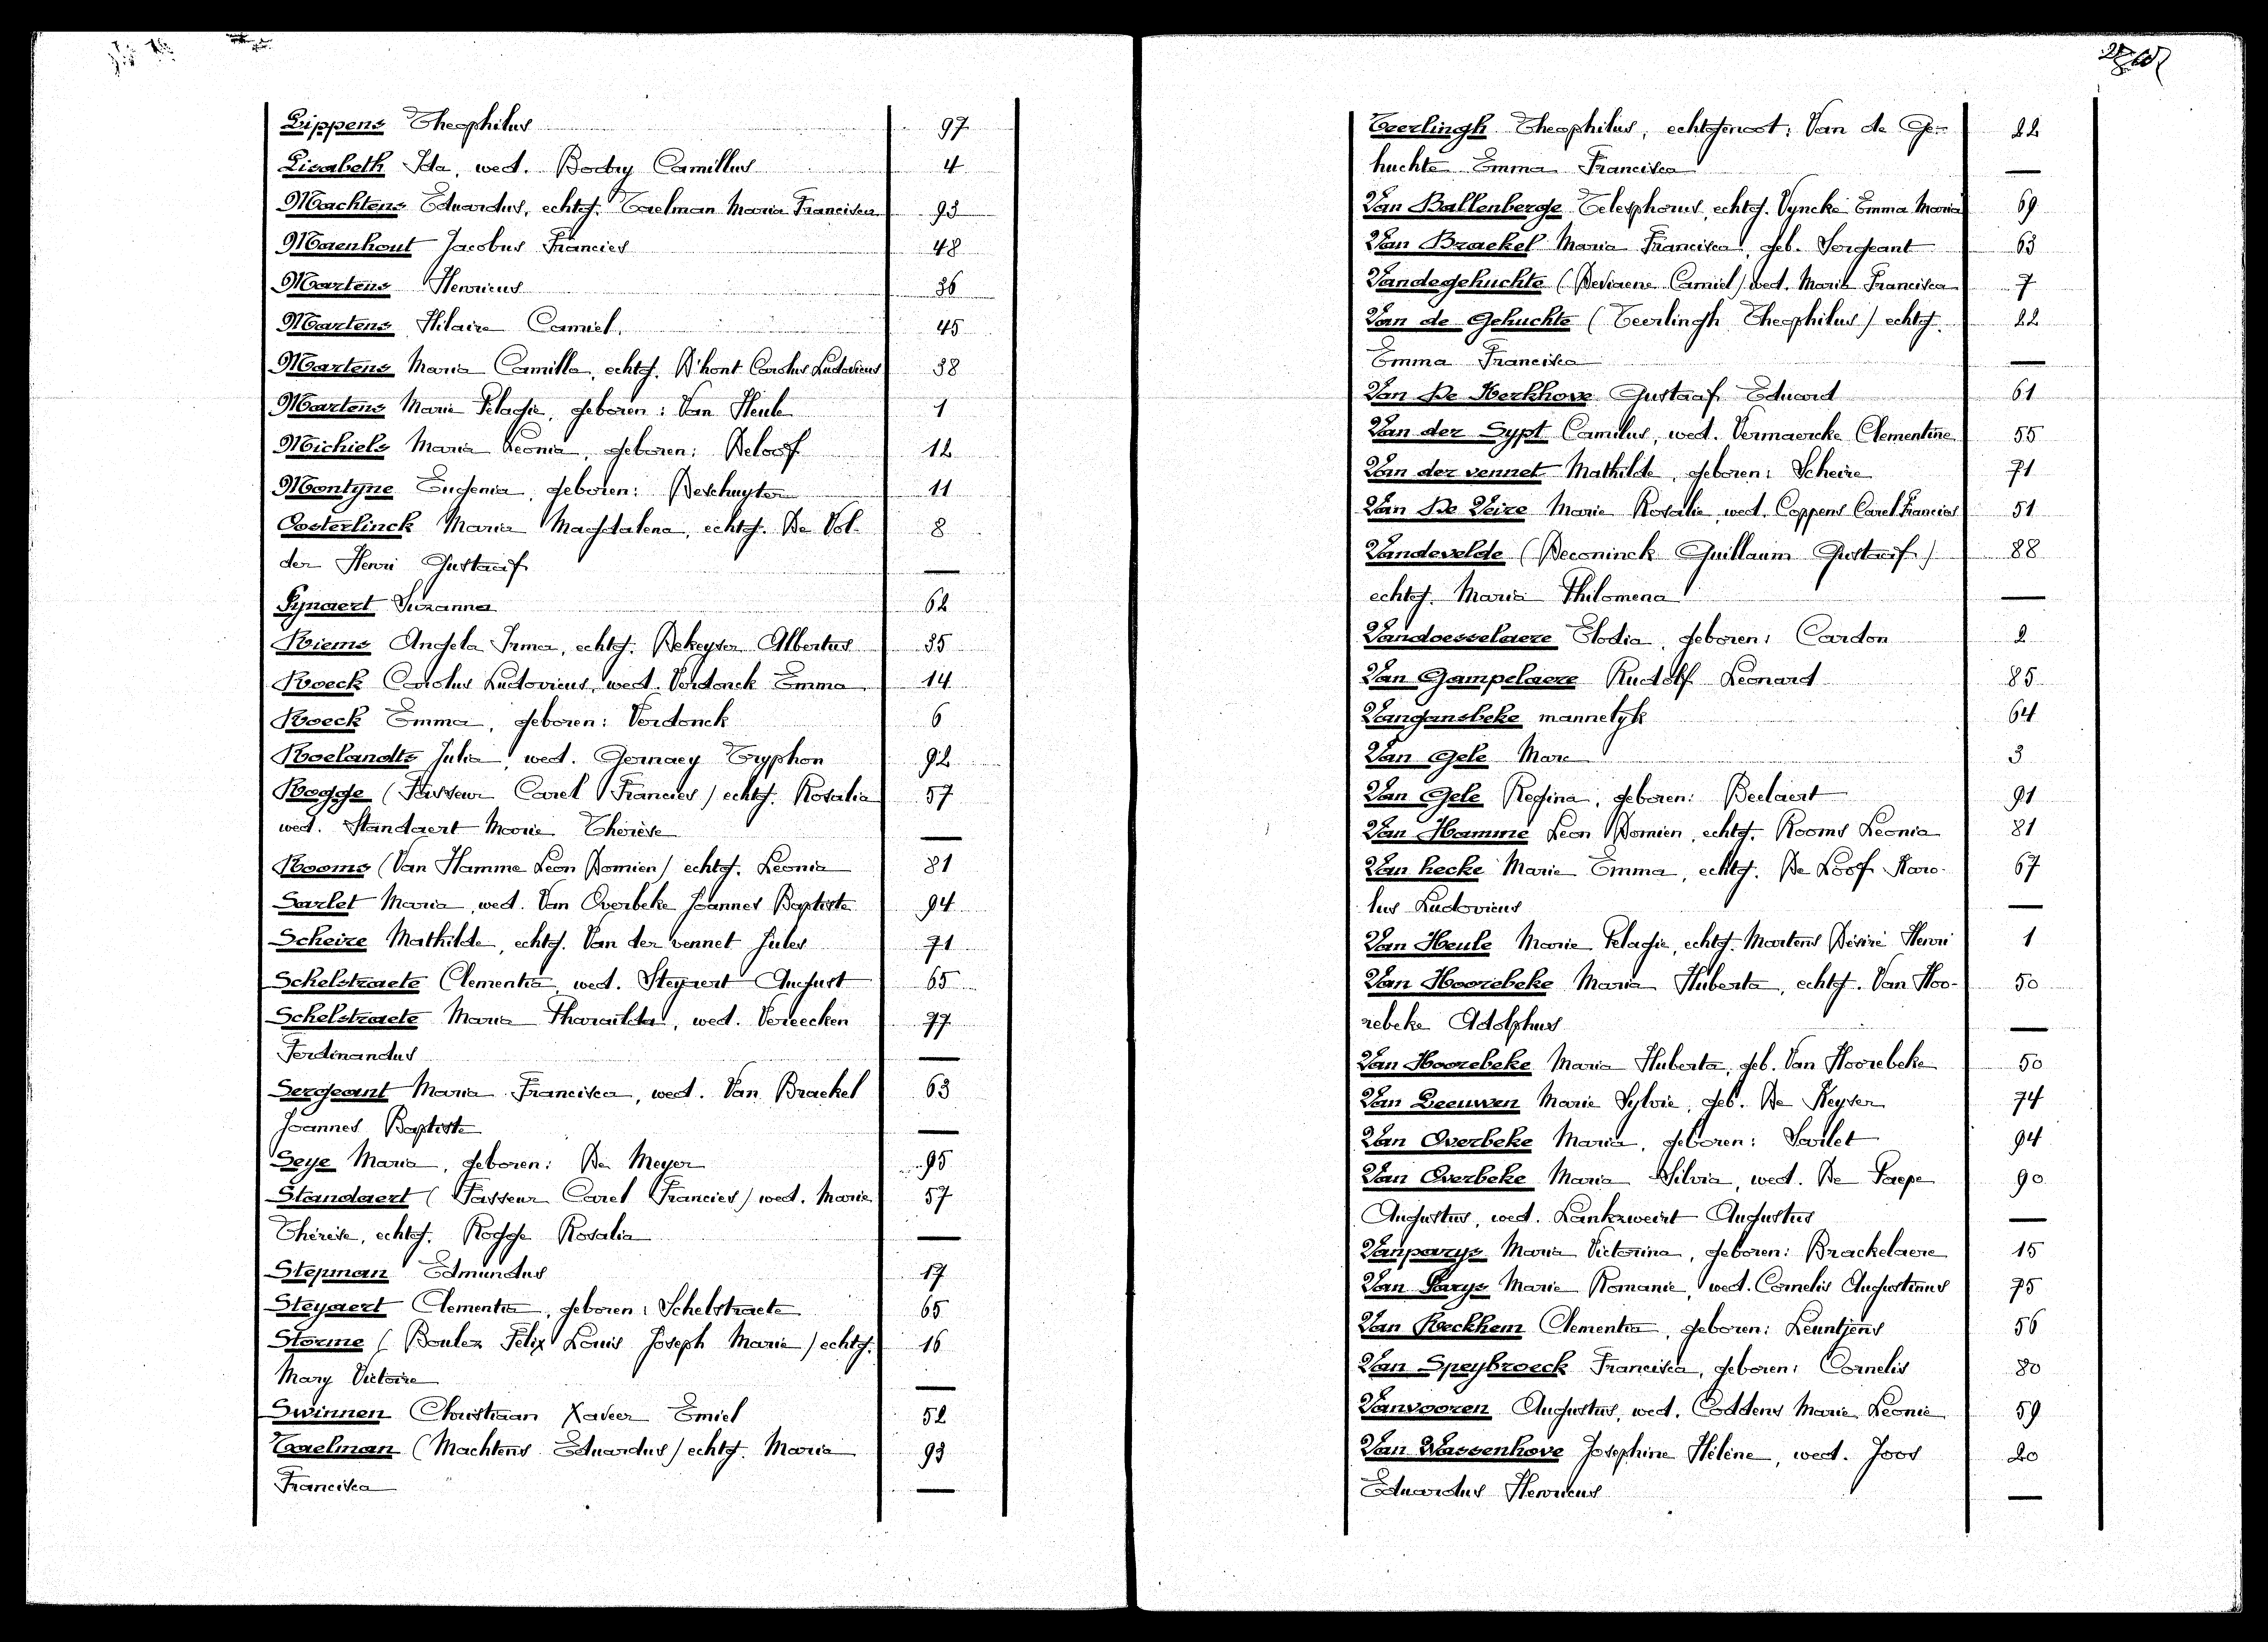 Lippens Theophilus 97
Lisabeth Ida, wed. Bodry Camillus 4
Machtens Eduardus, echtg. Taelman Maria Francisca 93
Maenhout Jacobus Francies 48
Martens Henricus 36
Martens Hilaire Camiel. 45
Martens Maria Camilla, echtg. D'hont Carolus Ludovicus 38
Martens Marie Pelagie, geboren: Van Heule 1
Michiels Maria Leonia, geboren: Deloof 12
Montyne Eugenia, geboren: Deschuyter 11
Oosterlinck Maria Magdalena, echtg. De Vol- 8
der Henri Gustaaf —
Pynaert Suzanna 62
Riems Angela Irma, echtg. Dekeyser Albertus 35
Roeck Carolus Ludovicus, wed. Verdonck Emma 14
Roeck Emma, geboren: Verdonck 6
Roelandts Julia, wed. Gernaey Tryphon 92
Rogge (Fasseur Carel Francies) echtg. Rosalia 57
wed. Standaert Marie Thérèse —
Rooms (Van Hamme Leon Domien) echtg. Leonia 81
Sarlet Maria, wed. Van Overbeke Joannes Baptiste 94
Scheire Mathilde, echtg. Van der vennet Jules 71
Schelstraete Clementia, wed. Steyaert August 65
Schelstraete Maria Tharailda, wed. Vereecken 77
Ferdinandus —
Sergeant Maria Francisca, wed. Van Braekel 63
Joannes Baptiste —
Seye Maria, geboren: De Meyer 95
Standaert (Fasseur Carel Francies) wed. Marie 57
Thérèse, echtg. Rogge Rosalia —
Stepman Edmundus 17
Steyaert Clementia, geboren: Schelstraete 65
Storme (Boulez Felix Louis Joseph Marie) echtg. 16
Mary Victoire —
Swinnen Christiaan Xaveer Emiel 52
Taelman (Machtens Eduardus) echtg. Maria 93
Francisca —
Teerlingh Theophilus, echtgenoot: Van de Ge- 22
huchte Emma Francisca —
Van Ballenberge Telesphorus, echtg. Vyncke Emma Maria 69
Van Braekel Maria Francisca, geb. Sergeant 63
Vandegehuchte (Deviaene Camiel) wed. Maria Francisca 7
Van de Gehuchte (Teerlingh Theophilus) echtg. 22
Emma Francisca —
Van De Kerkhove Gustaaf Eduard 61
Van der Sypt Camilus, wed. Vermaercke Clementine 55
Van der vennet Mathilde, geboren: Scheire 71
Van De Veire Marie Rosalie, wed. Coppens Carel Francies 51
Vandevelde (Deconinck Guillaum Gustaaf) 88
echtg. Maria Philomena —
Vandoesselaere Elodia, geboren: Cardon 2
Van Gampelaere Rudolf Leonard 85
Vangansbeke mannelyk 64
Van Gele Marc 3
Van Gele Regina, geboren: Beelaert 91
Van Hamme Leon Domien, echtg. Rooms Leonia 81
Van hecke Marie Emma, echtg. De Loof Karo- 67
lus Ludovicus —
Van Heule Marie Pelagie, echtg. Martens Désiré Henri 1
Van Hoorebeke Maria Huberta, echtg. Van Hoo- 50
rebeke Adolphus —
Van Hoorebeke Maria Huberta, geb. Van Hoorebeke 50
Van Leeuwen Marie Sylvie, geb. De Keyser 74
Van Overbeke Maria, geboren: Sarlet 94
Van Overbeke Maria Silvia, wed. De Paepe 90
Augustus, wed. Lankzweirt Augustus —
Vanparys Maria Victorina, geboren: Brackelaere 15
Van Parys Marie Romanie, wed. Cornelis Augustinus 75
Van Reckhem Clementia, geboren: Leuntjens 56
Van Speybroeck Francisca, geboren: Cornelis 80
Vanvooren Augustus, wed. Coddens Marie Leonie 59
Van Wassenhove Josephine Hélène, wed. Joos 20
Eduardus Henricus —